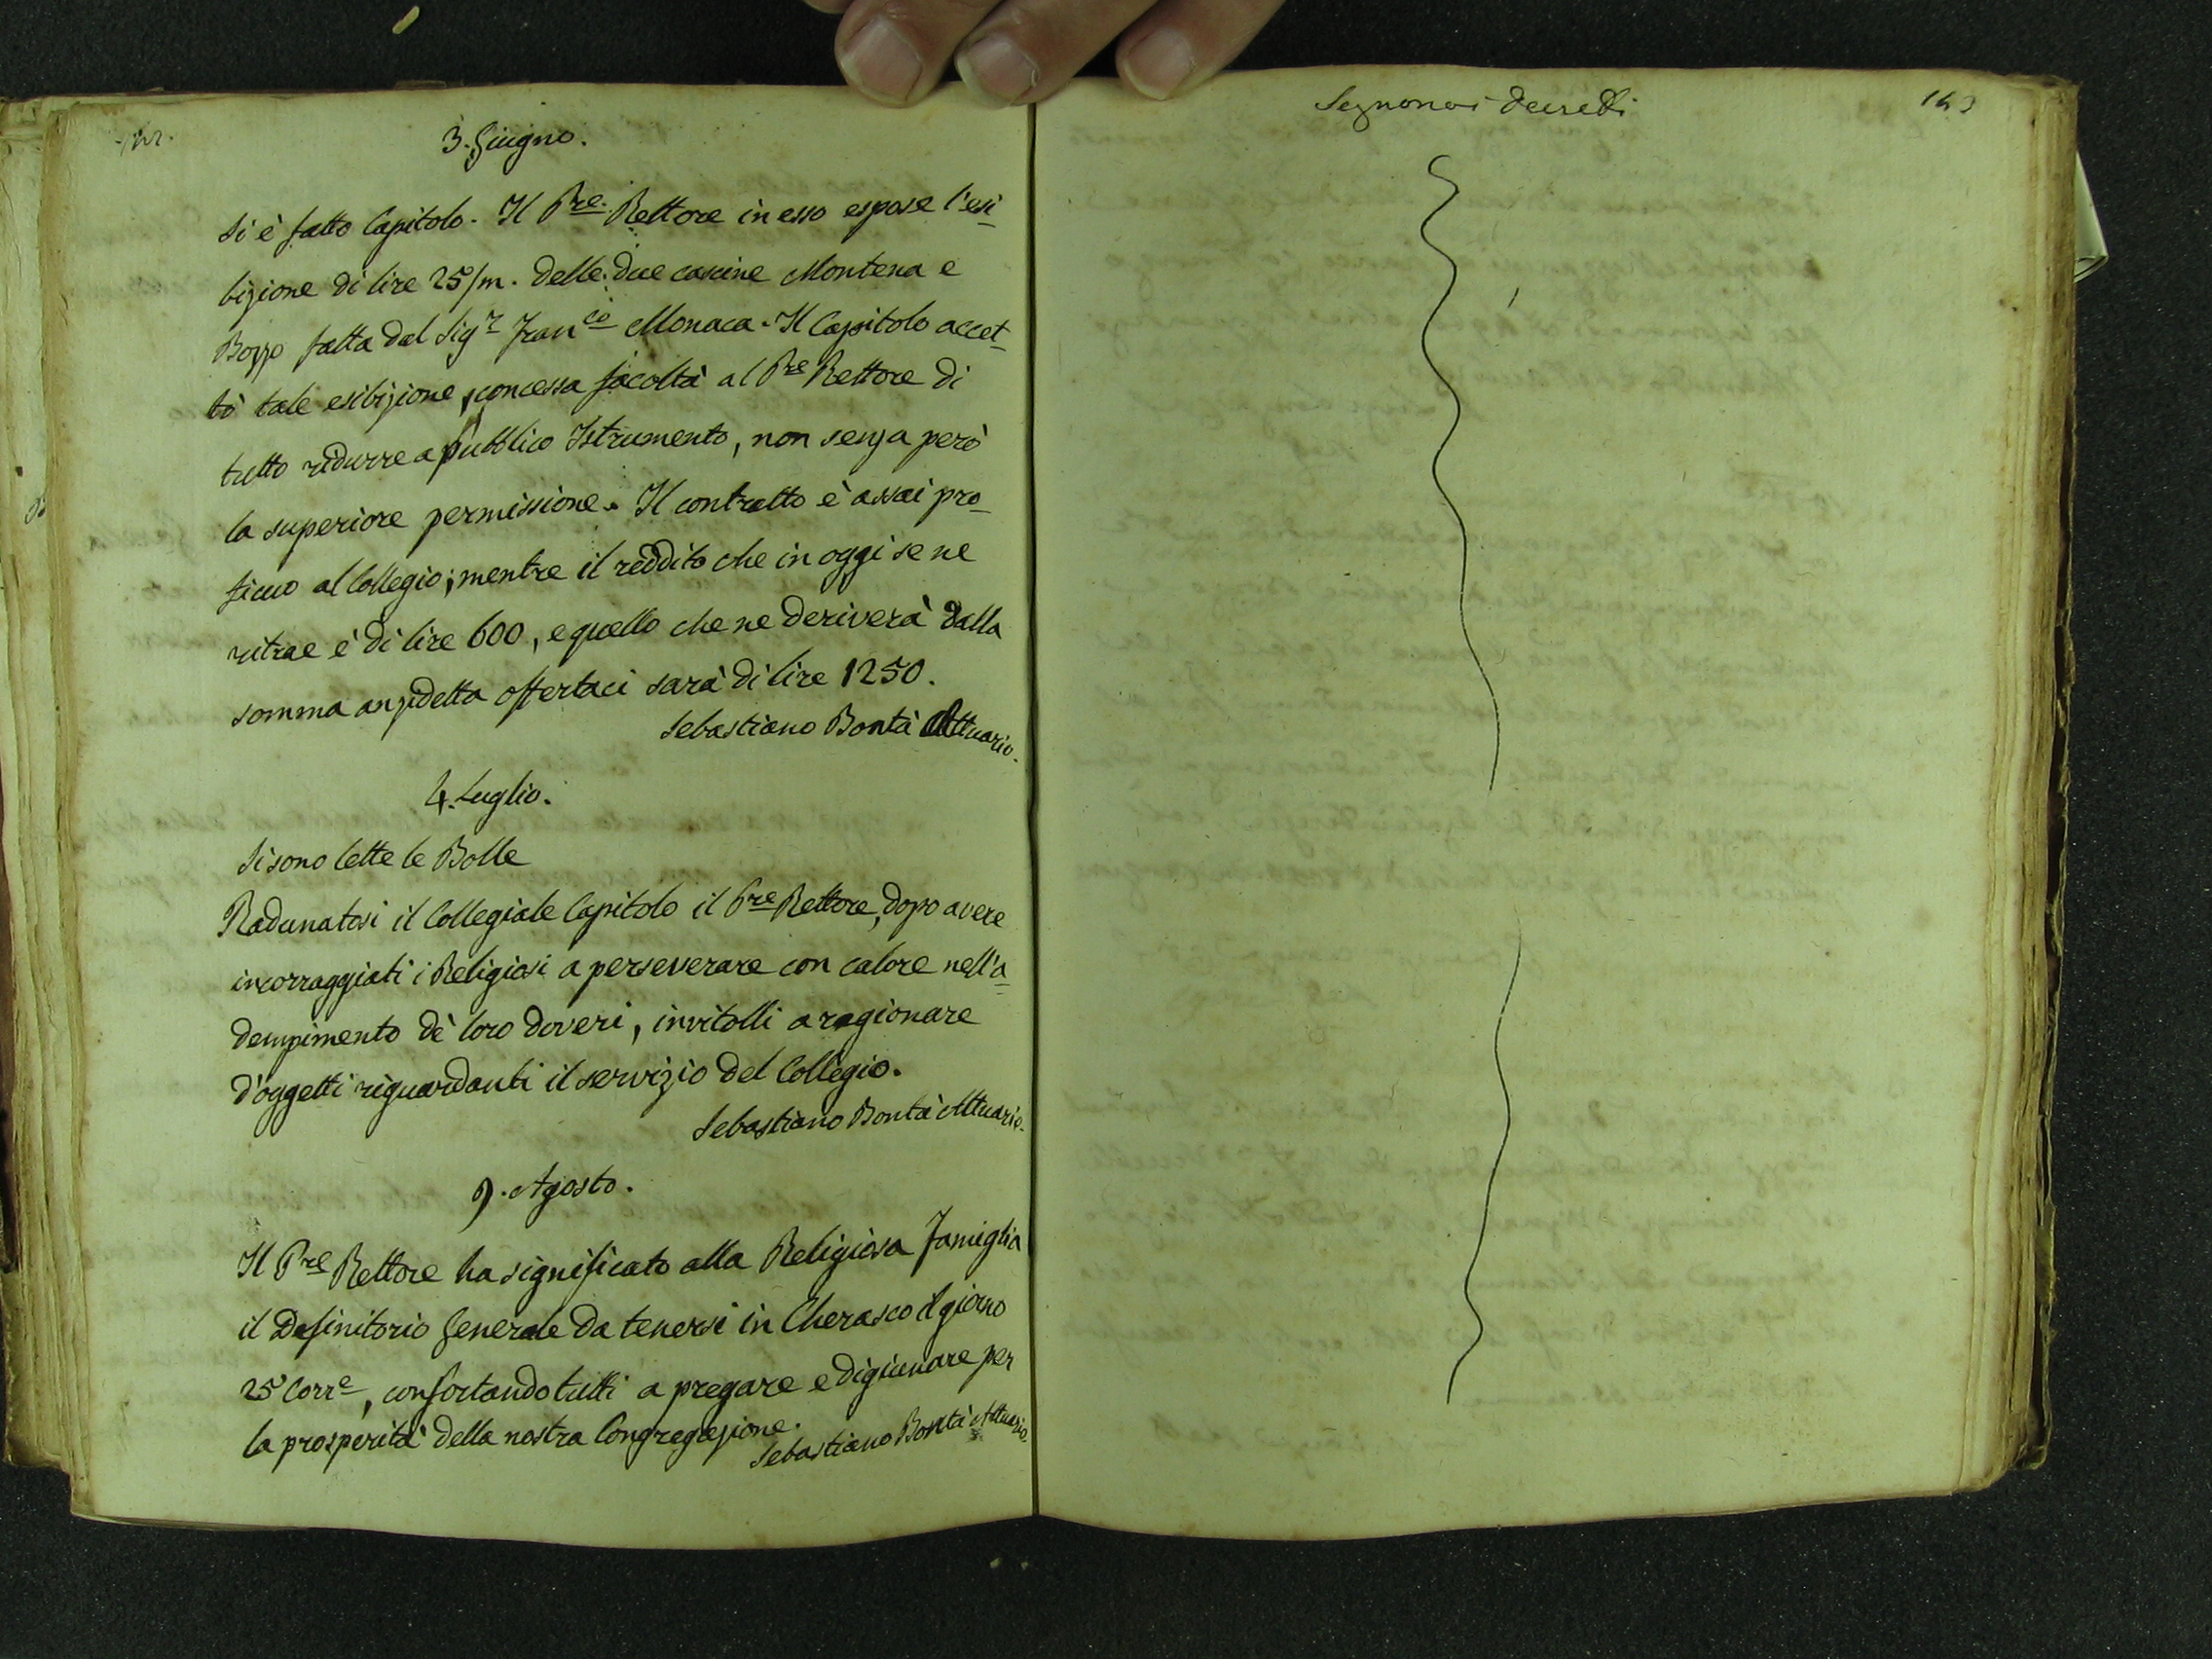 142.
3. Giugno.
Si è fatto Capitolo. Il Pre. Rettore in esso espose l'esi-
bizione di lire 25/m. delle due cascine Montena e
Bozzo fatta dal Sigr Franco Monaca. Il Capitolo accet-
tò tale esibizione, concessa facoltà al Pre Rettore di
tutto ridurre a pubblico Istrumento, non senza però
la superiore permissione. Il contratto è assai pro-
ficuo al Collegio; mentre il reddito che in oggi se ne
ritrae è di lire 600, e quello che ne deriverà dalla
somma anzidetta offertaci sarà di lire 1250.
Sebastiano Bontà Attuario.
4. Luglio.
Si sono lette le Bolle
Radunatosi il Collegiale Capitolo il Pre Rettore, dopo avere
incorraggiati i Religiosi a perseverare con calore nell'a-
dempimento dè loro doveri, invitolli a ragionare
d'oggetti riguardanti il servizio del Collegio.
Sebastiano Bontà Attuario.
9. Agosto.
Il Pre Rettore ha significato alla Religiosa Famiglia
il Definitorio Generale da tenersi in Cherasco il giorno
25 Corre, confortando tutti a pregare e digiunare per
la prosperità della nostra Congregazione.
Sebastiano Bontà Attuario
Segnonoi decretti
143